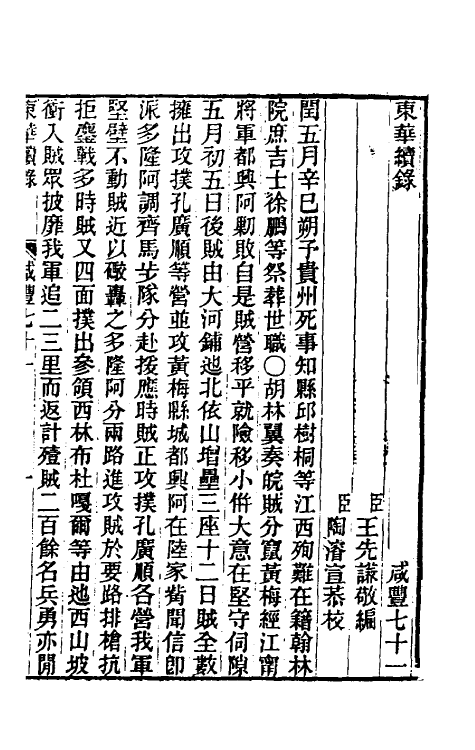 東華續錄　咸豐七十一
臣王先謙敬編
臣陶濬宣恭校
閏五月辛巳朔予貴州死事知縣邱樹桐等江西殉難在籍翰林
院庶吉士徐鵬等祭葬世職〇胡林翼奏皖賊分竄黃梅經江南
將軍都興阿勦敗自是賊營移平就險移小併大意在堅守伺隙
五月初五日後賊由大河鋪迆北依山增壘三座十二日賊全數
擁出攻撲孔廣順等營並攻黃梅縣城都興阿在陸家觜聞信卽
派多隆阿調齊馬步隊分赴援應時賊正攻撲孔廣順各營我軍
堅壁不動賊近以礮轟之多隆阿分兩路進攻賊於要路排槍抗
拒鏖戰多時賊又四面撲出參領西林布杜嘎爾等由迆西山坡
衝入賊眾披靡我軍追二三里而返計殪賊二百餘名兵勇亦閒
東華續錄　咸豐七十一　一